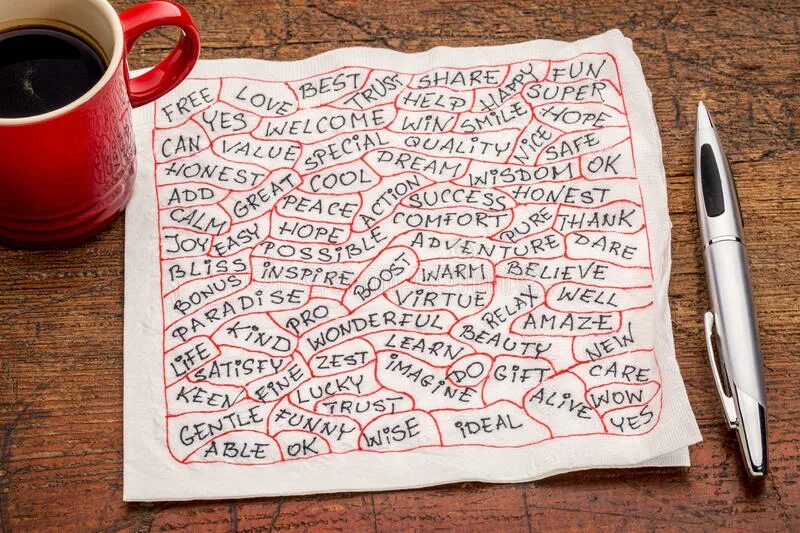 FREE LOVE BEST TRUST SHARE HAPPY FUN
YES WELCOME HELP WIN SMILE SUPER
CAN VALUE SPECIAL QUALITY NICE HOPE
HONEST GREAT COOL DREAM WISDOM SAFE OK
ADD PEACE ACTION SUCCESS HONEST
CALM EASY HOPE COMFORT PURE THANK
JOY POSSIBLE ADVENTURE DARE
BLISS INSPIRE BOOST WARM BELIEVE
BONUS VIRTUE RELAX WELL
PARADISE PRO WONDERFUL BEAUTY AMAZE
LIFE KIND LEARN NEW
SATISFY ZEST IMAGINE DO GIFT CARE
KEEN FINE LUCKY ALIVE WOW
GENTLE FUNNY TRUST YES
ABLE OK WISE IDEAL